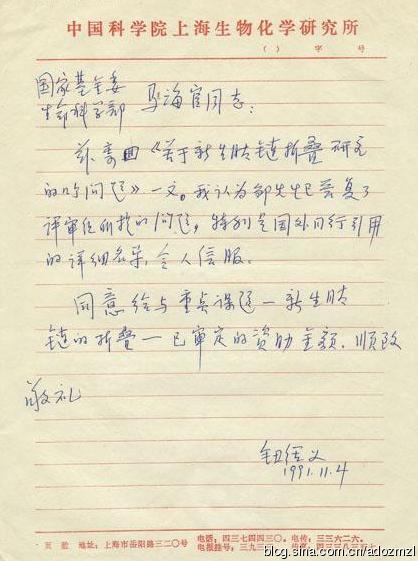 中国科学院上海生物化学研究所
( ) 字 号
国家基金委
生命科学部 马海官同志：
兹寄回《关于新生肽链折叠研究
的几个问题》一文。我认为邹先生已答复了
评审组所提的问题，特别是国外同行引用
的详细名录，令人信服。
同意给与重点课题—新生肽
链的折叠—已审定的资助金额。顺致
敬礼
钮经义
1991.11.4
地址：上海市岳阳路三二〇号
电话：四三七四四三〇. 电传：三三六二六.
电报挂号：
blog.sina.com.cn/adozmzl